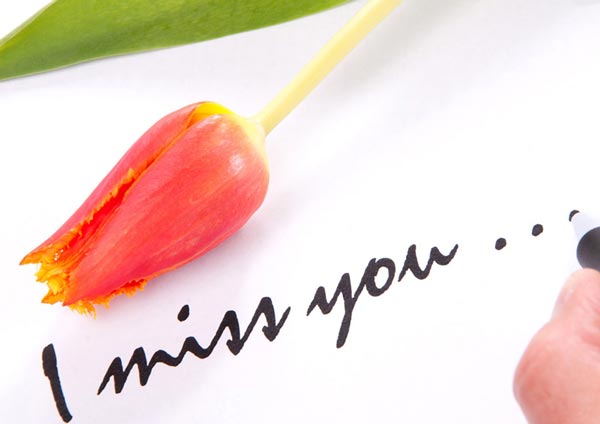 I miss you ...